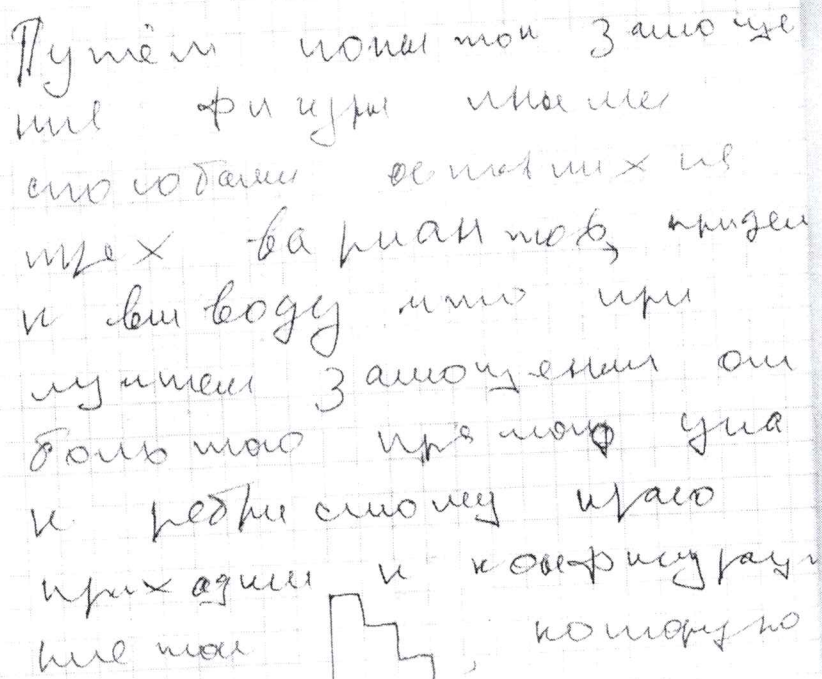 Путём попыток замоще
ние фигуры иными
способами оставшихся
трех вариантов, придем
к выводу что при
лучшем замощении от
большого прямого угла
к ребристому краю
приходим к конфигурац
клеток , которую